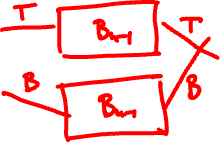 T B_{n-1} T
B B_{n-1} B